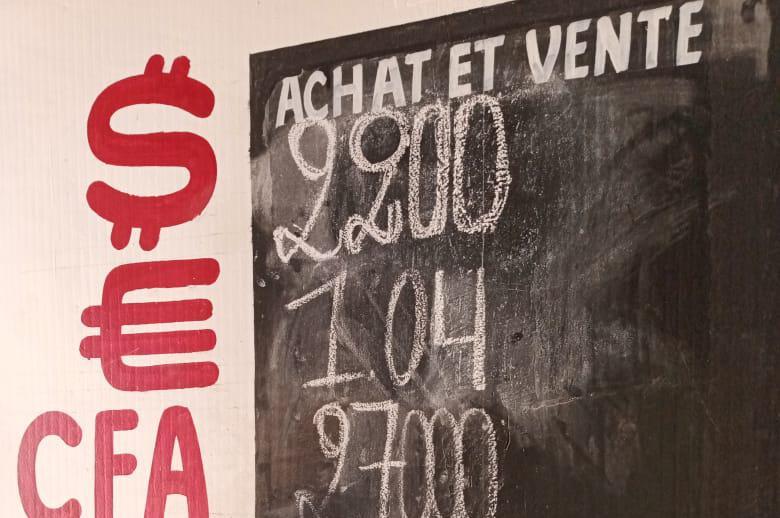 ACHAT ET VENTE
$ 2200
€ 1.04
CFA 37000